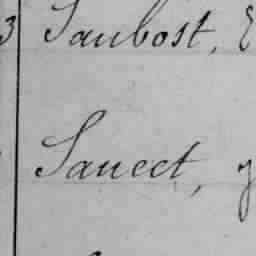 3 Saubost, E
Sauect,